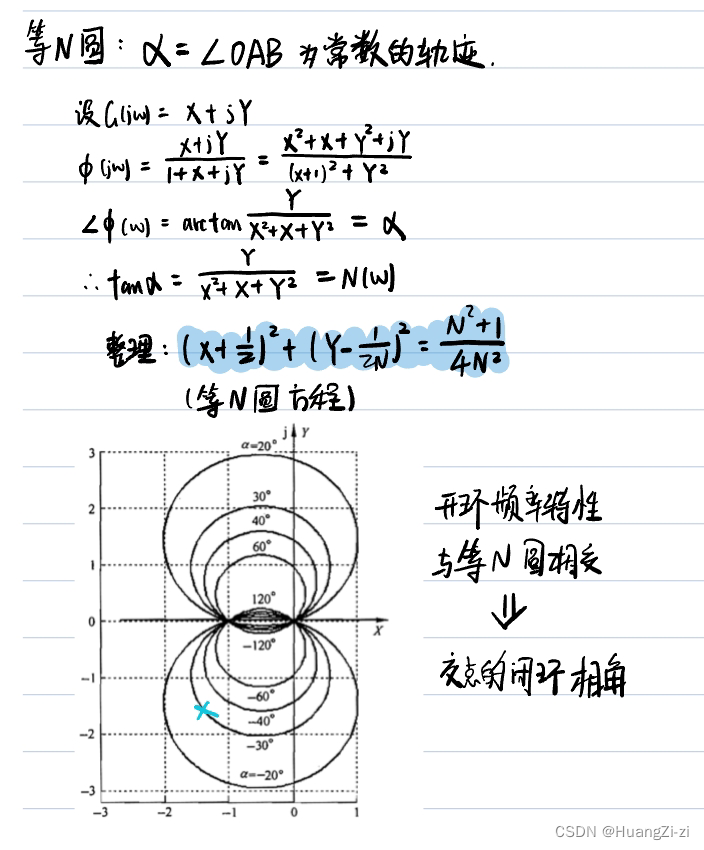 等N圆：α=∠OAB 为常数的轨迹.
设G(jw)= X+jY
ϕ(jw) = X+jY / 1+X+jY = X²+X+Y²+jY / (X+1)²+Y²
∠ϕ(w) = arctan Y / X²+X+Y² = α
∴tanα = Y / X²+X+Y² = N(w)
整理: (X+1/2)²+(Y-1/2N)² = N²+1 / 4N²
(等N圆方程)
j Y
α=20°
3
30°
2
40°
60°
1
120°
0
X
-120°
-1
-60°
-40°
-2
-30°
α=-20°
-3
-3 -2 -1 0 1
开环频率特性
与等N圆相交
⇓
交点的闭环相角
CSDN @HuangZi-zi